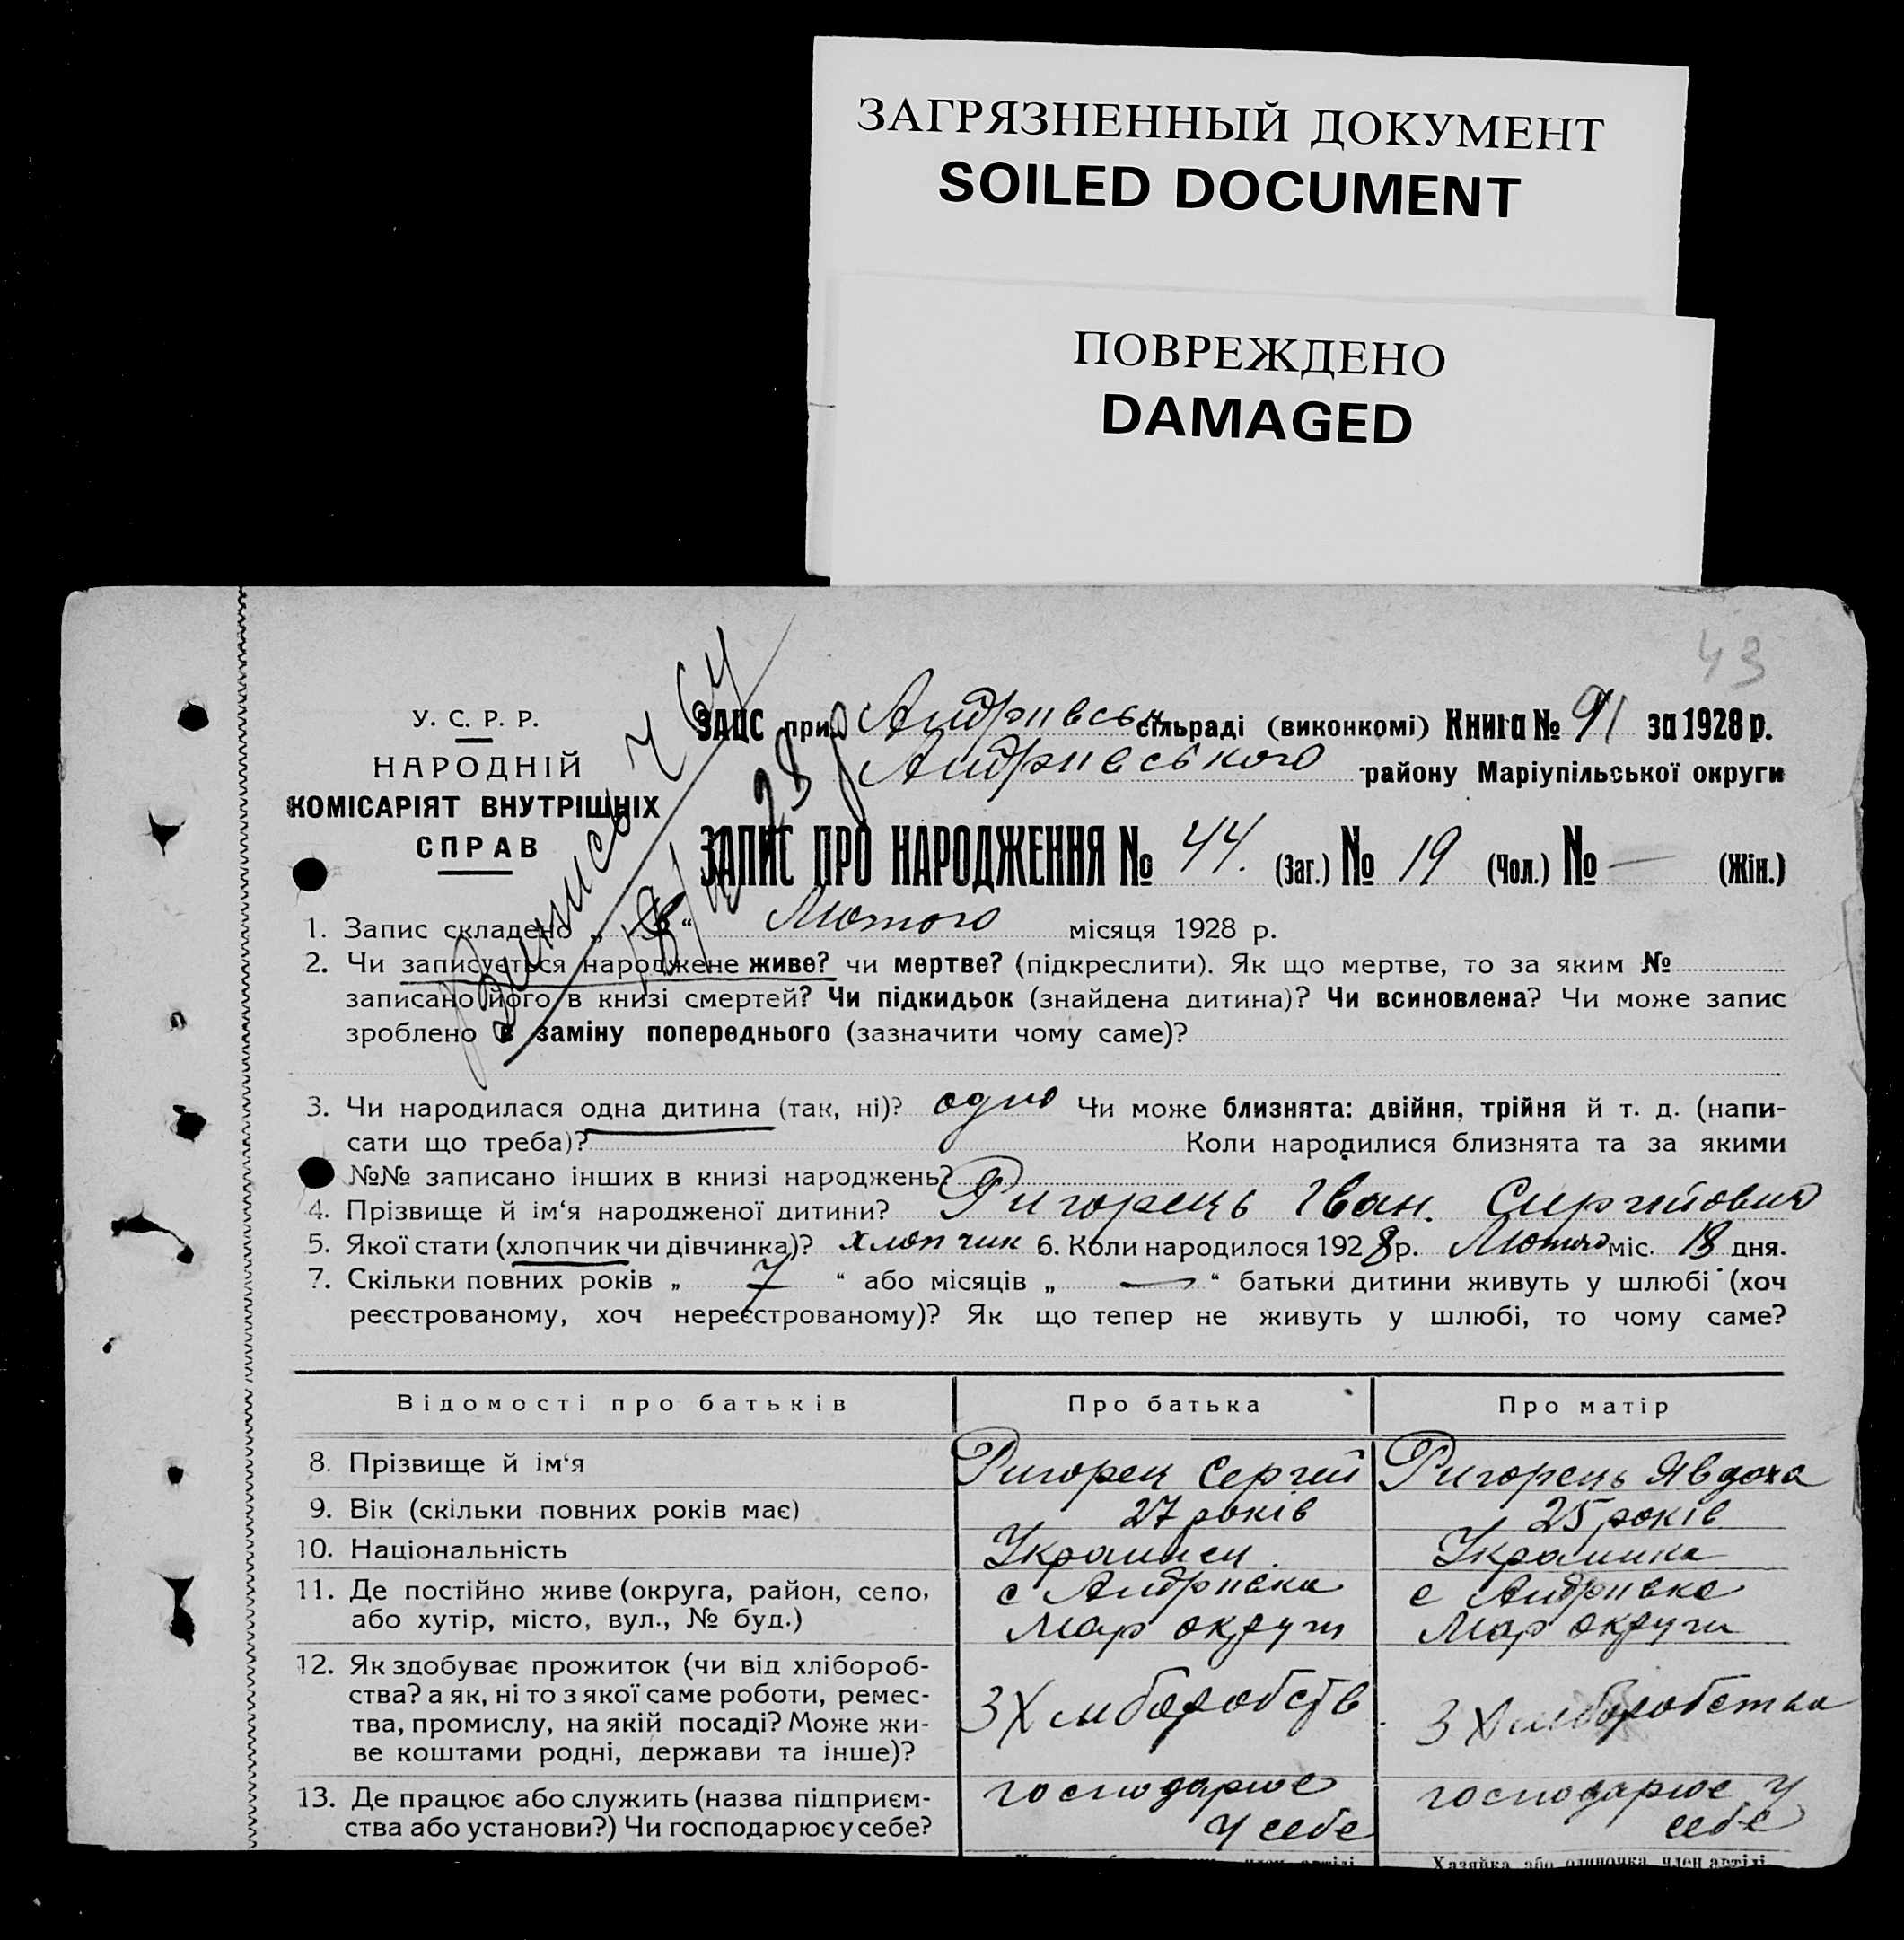 ЗАГРЯЗНЕННЫЙ ДОКУМЕНТ
SOILED DOCUMENT
ПОВРЕЖДЕНО
DAMAGED
43
У. С. Р. Р.
НАРОДНІЙ
КОМІСАРІЯТ ВНУТРІШНІХ
СПРАВ
ЗАЦС при Андриівськ сільраді (виконкомі) Книга № 91 за 1928 р.
Андриівського району Маріупільської округи
ЗАПИС ПРО НАРОДЖЕННЯ № 44. (Заг.) № 19 (Чол.) № — (Жін.)
1. Запис складено „ “ Лютого місяця 1928 р.
2. Чи записується народжене живе? чи мертве? (підкреслити). Як що мертве, то за яким №
записано його в книзі смертей? Чи підкидьок (знайдена дитина)? Чи всиновлена? Чи може запис
зроблено в заміну попереднього (зазначити чому саме)?
3. Чи народилася одна дитина (так, ні)? одно Чи може близнята: двійня, трійня й т. д. (напи-
сати що треба)? Коли народилися близнята та за якими
№№ записано інших в книзі народжень?
4. Прізвище й ім‘я народженої дитини? Ригорець Іван. Сиргийович
5. Якої стати (хлопчик чи дівчинка)? хлопчик 6. Коли народилося 1928 р. Лютого міс. 18 дня.
7. Скільки повних років „ 7 “ або місяців „ — “ батьки дитини живуть у шлюбі (хоч
реєстрованому, хоч нереєстрованому)? Як що тепер не живуть у шлюбі, то чому саме?
Відомості про батьків Про батька Про матір
8. Прізвище й ім‘я Ригорец Сергий Ригорець Явдоха
9. Вік (скільки повних років має) 27 років 25 років
10. Національність Украинец. Украинка
11. Де постійно живе (округа, район, село, с Андриівка с Андриівка
або хутір, місто, вул., № буд.) Мар округи Мар округи
12. Як здобуває прожиток (чи від хлібороб-
ства? а як, ні то з якої саме роботи, ремес- З Хлиборобств З Хлиборобства
тва, промислу, на якій посаді? Може жи-
ве коштами родні, держави та інше)?
13. Де працює або служить (назва підприєм- господарює господарює у
ства або установи?) Чи господарює у себе? у себе себе
Хазяйка або одиночка, член артілі